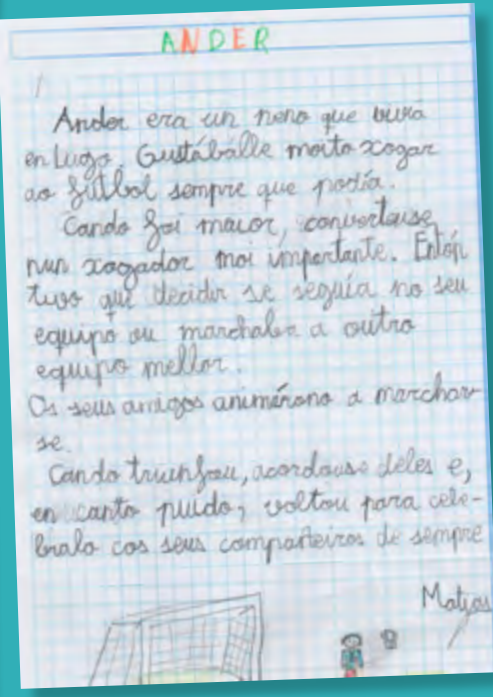 ANDER
Ander era un neno que vivía
en Lugo. Gustáballe moito xogar
ao fútbol sempre que podía.
Cando foi maior, converteuse
nun xogador moi importante. Entón
tuvo que decidir se seguía no seu
equipo ou marchaba a outro
equipo mellor.
Os seus amigos animárono a marchar-
se.
Cando triunfou, acordouse deles e,
en canto puido, voltou para cele-
bralo cos seus compañeiros de sempre
Matías